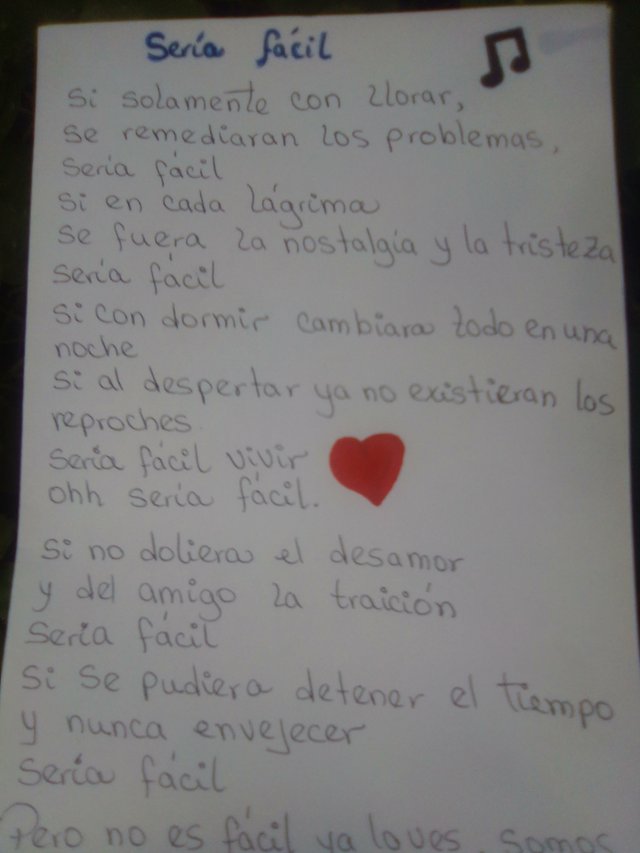 Sería fácil
Si solamente con llorar,
se remediaran los problemas,
Sería fácil
Si en cada lágrima
se fuera la nostalgia y la tristeza
Sería fácil
Si con dormir cambiara todo en una
noche
Si al despertar ya no existieran los
reproches
Sería fácil vivir
ohh sería fácil.
Si no doliera el desamor
y del amigo la traición
Sería fácil
Si se pudiera detener el tiempo
y nunca envejecer
Sería fácil
Pero no es fácil ya lo ves, somos